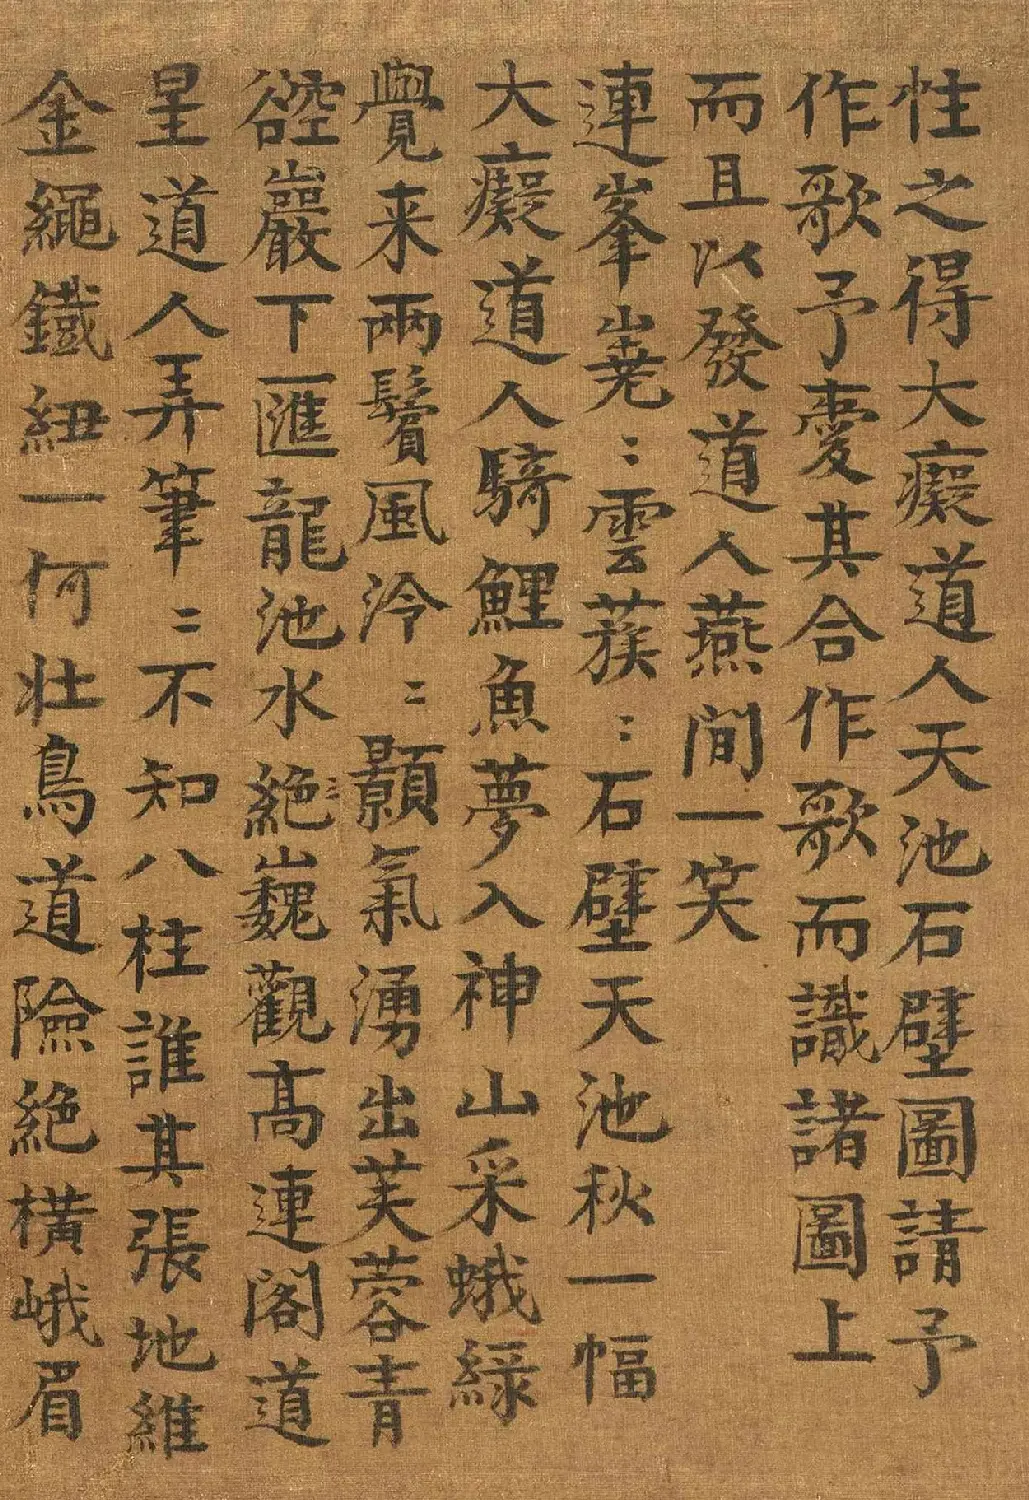 性之得大癡道人天池石壁圖請予
作歌予愛其合作歌而識諸圖上
而且以發道人燕間一笑
連峯嶤〻雲蔟〻石壁天池秋一幅
大癡道人騎鯉魚夢入神山采蛾緑
覺来兩鬢風泠〻顥氣湧出芙蓉青
谾巖下匯龍池水絶〻巍觀高連閣道
星道人弄筆〻不知八柱誰其張地維
金繩鐵紐一何壯鳥道險絶橫峨眉